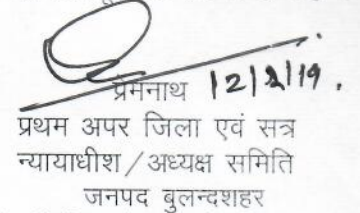 प्रेमनाथ 12/2/19.
प्रथम अपर जिला एवं सत्र
न्यायाधीश / अध्यक्ष समिति
जनपद बुलन्दशहर